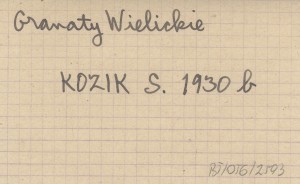 Granaty Wielickie
KOZIK S. 1930 b
BJ/OTG/2593